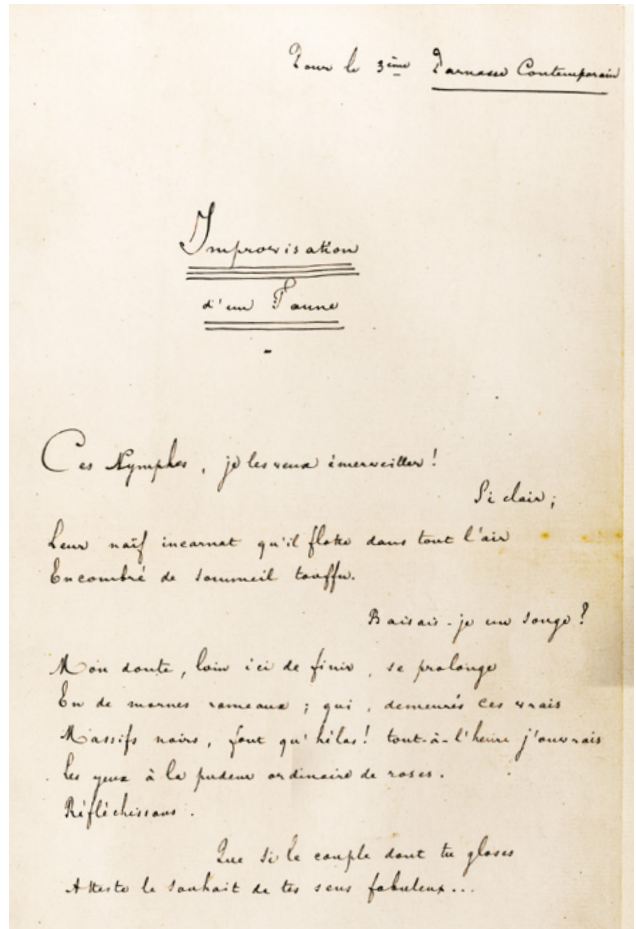 Pour le 3ème Parnasse Contemporain
Improvisation
d'un Faune
-
Ces Nymphes, je les veux émerveiller !
Si clair,
Leur naïf incarnat qu'il flotte dans tout l'air
Encombré de sommeil touffu.
Baisais-je un songe ?
Mon doute, loin ici de finir, se prolonge
En de mornes rameaux ; qui, demeurés ces vrais
Massifs noirs, font qu'hélas ! tout-à-l'heure j'ouvrais
les yeux à la pudeur ordinaire de roses.
Réfléchissons.
Que si le couple dont tu gloses
Atteste le souhait de tes sens fabuleux...